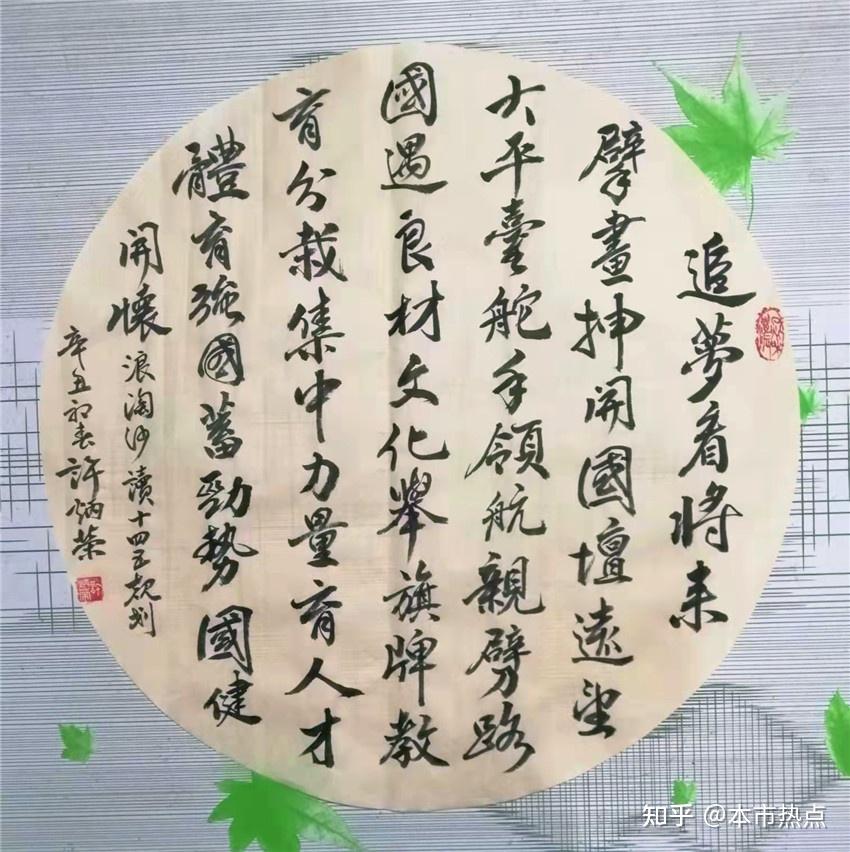 追夢看將来
擘畫抻開國壇遠望
大平臺舵手領航親劈路
國遇良材文化舉旗牌教
育分栽集中力量育人才
體育強國蓄勁勢國健
開懷
浪淘沙讀十四五規划
辛丑初春許炳榮
知乎 @本市热点